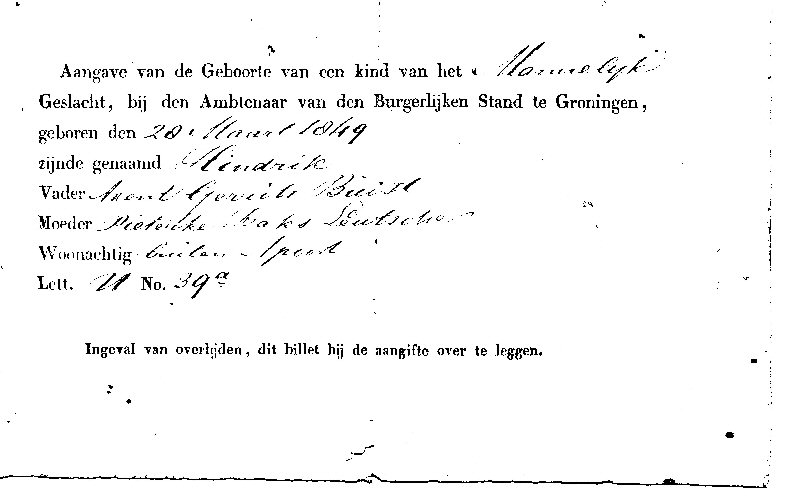 Aangave van de Geboorte van een kind van het Mannelijk
Geslacht, bij den Ambtenaar van den Burgerlijken Stand te Groningen,
geboren den 28 Maart 1849
zijnde genaamd Hindrik
Vader Arent Gerrits Buist
Moeder Pieterke Duitscher
Woonachtig buiten
Lett. No. 39a
Ingeval van overlijden, dit billet bij de aangifte over te leggen.